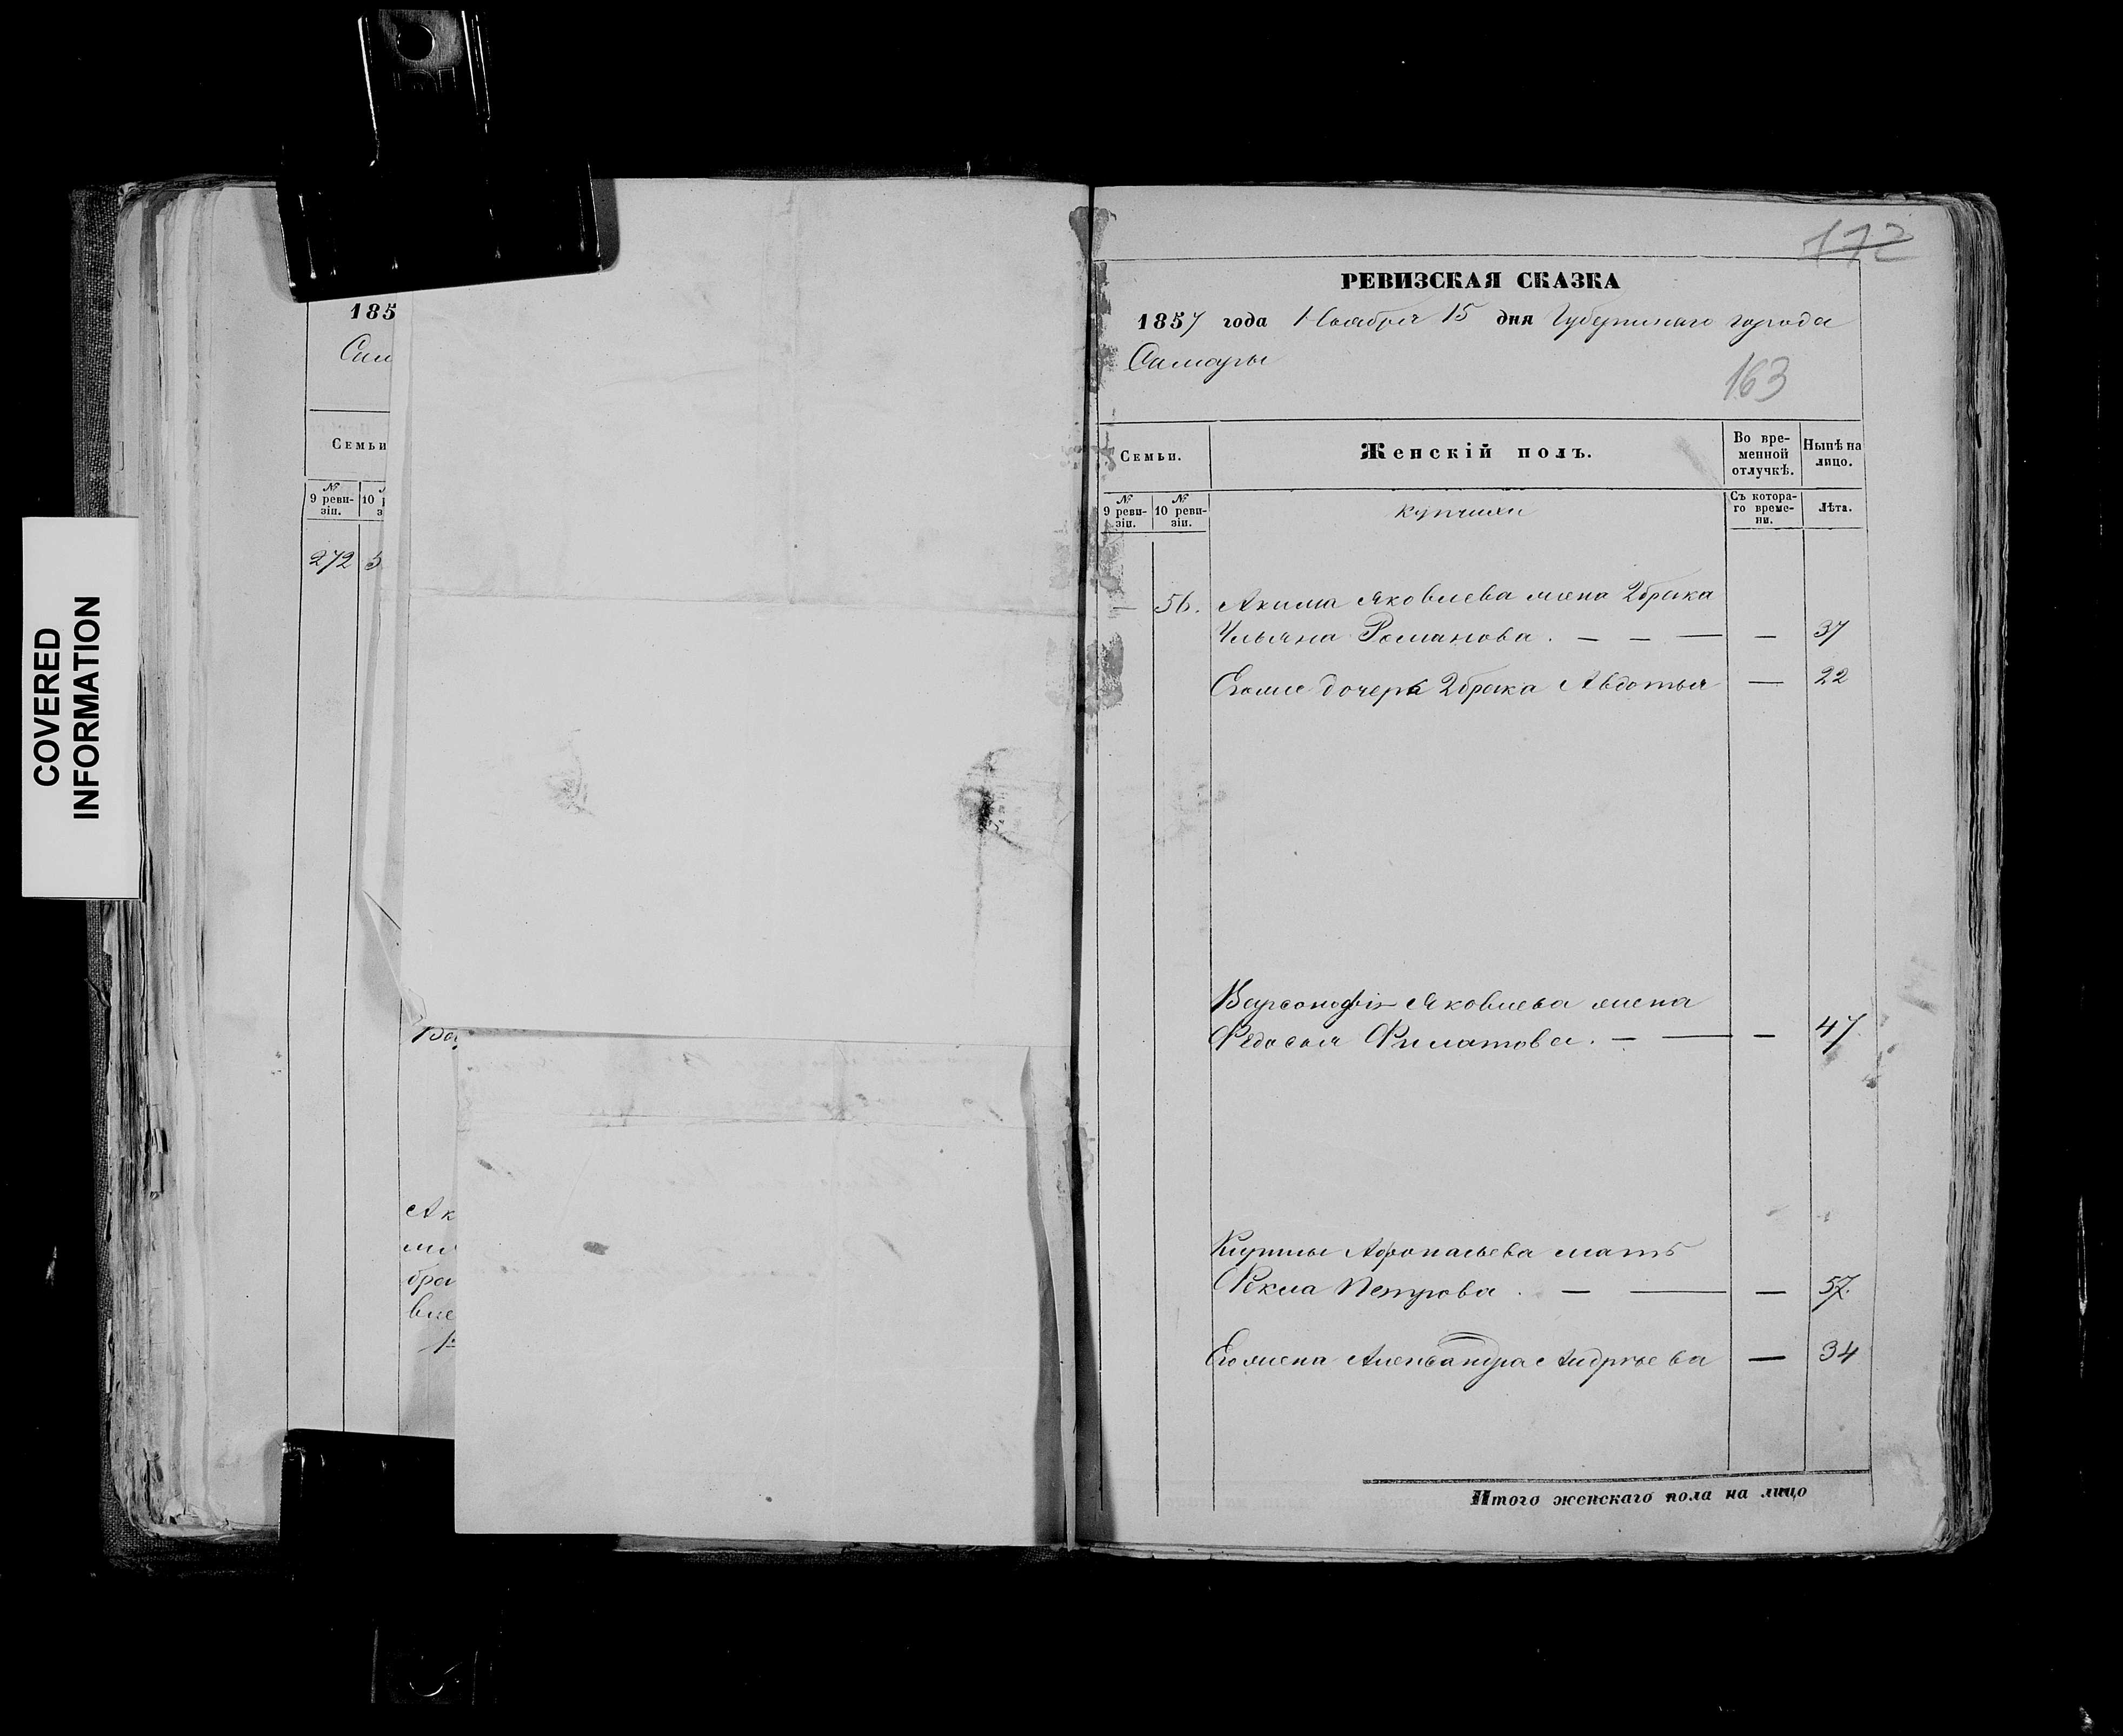 COVERED
INFORMATION
185
Сам
Семьи
№
9 реви-
зіи.
10
272
Ак
бра
172
РЕВИЗСКАЯ СКАЗКА
1857 года Ноября 15 дня Губернскаго города
Самары
163
Семьи.
Женскій полъ.
Во вре-
менной
отлучкѣ.
Нынѣ на
лицо.
№
9 реви-
зіи.
№
10 реви-
зіи.
купчихи
Съ котора-
го време-
ни.
Лѣта.
— 56. Акима Яковлева жена 2 брака
Ульяна Романова. — — — — 37
Ево же дочерь 2 брака Авдотья — 22
Варсонофія Яковлева жена
Федосья Филатова. — — — 47
Кузмы Афонасьева мать
Фекла Петрова. — — — 57.
Ево жена Александра Андреева — 34
Итого женскаго пола на лицо